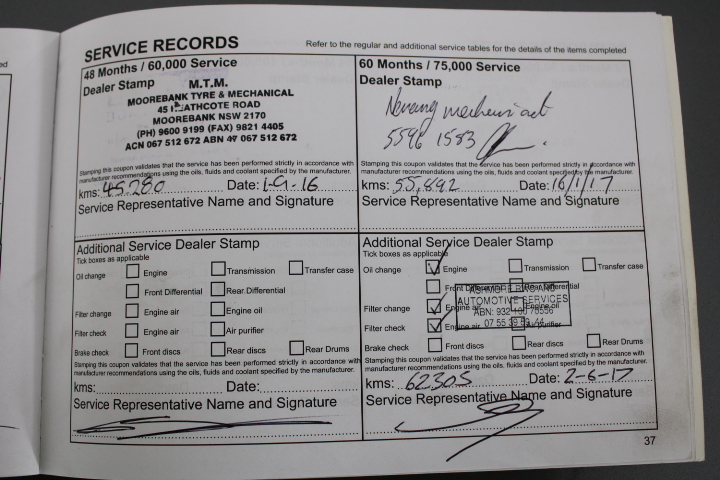 SERVICE RECORDS
Refer to the regular and additional service tables for the details of the items completed
48 Months / 60,000 Service
Dealer Stamp
M.T.M.
MOOREBANK TYRE & MECHANICAL
ROAD
MOOREBANK NSW 2170
(PH) 9600 9199 (FAX) 9821 4405
ACN 067 512 672 ABN 49 067 512 672
Stamping this coupon validates that the service has been performed strictly in accordance with
manufacturer recommendations using the oils, fluids and coolant specified by the manufacturer.
kms: 45280 Date: 1-9-16
Service Representative Name and Signature
Additional Service Dealer Stamp
Tick boxes as applicable
Oil change Engine Transmission Transfer case
Front Differential Rear Differential
Filter change Engine air Engine oil
Filter check Engine air Air purifier
Brake check Front discs Rear discs Rear Drums
Stamping this coupon validates that the service has been performed strictly in accordance with
manufacturer recommendations using the oils, fluids and coolant specified by the manufacturer.
kms: Date:
Service Representative Name and Signature
60 Months / 75,000 Service
Dealer Stamp
Nerang
5596 1583
Stamping this coupon validates that the service has been performed strictly in accordance with
manufacturer recommendations using the oils, fluids and coolant specified by the manufacturer.
kms: 55,892 Date: 16/1/17
Service Representative Name and Signature
Additional Service Dealer Stamp
Tick boxes as applicable
Oil change Engine Transmission Transfer case
Front Differential Rear Differential
AUTOMOTIVE SERVICES
Filter change Engine air Engine oil
ABN: 932
Filter check Engine air Air purifier
07 55
Brake check Front discs Rear discs Rear Drums
Stamping this coupon validates that the service has been performed strictly in accordance with
manufacturer recommendations using the oils, fluids and coolant specified by the manufacturer.
kms: 62305 Date: 2-6-17
Service Representative Name and Signature
37